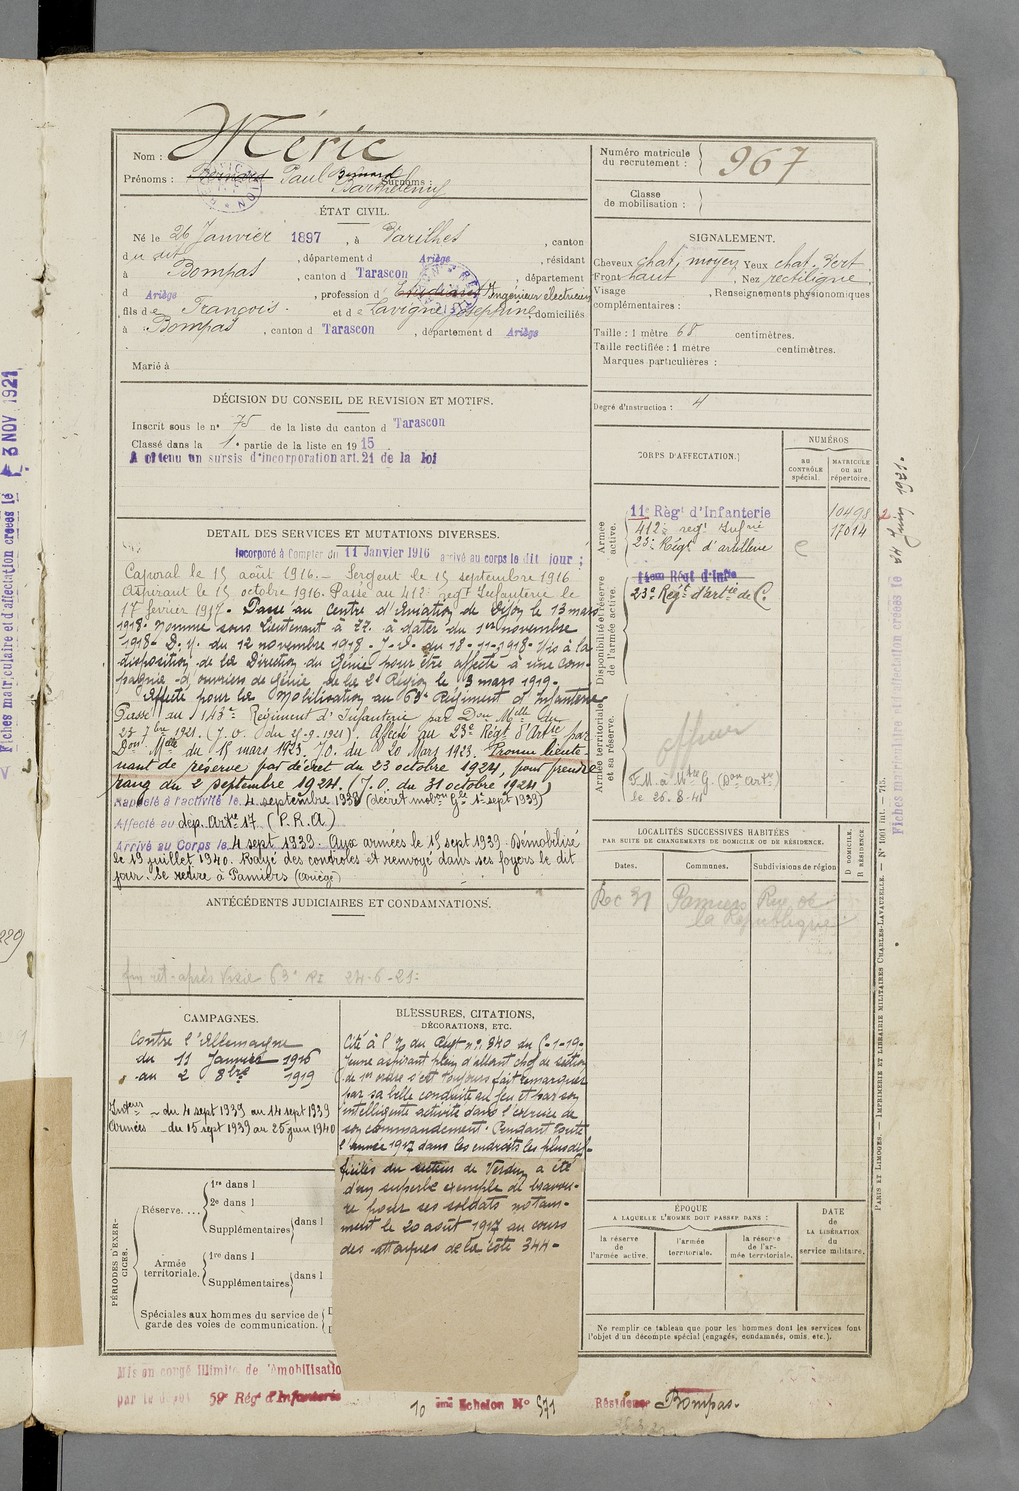 Nom : Méric
Numéro matricule du recrutement : 967
Prénoms : Bernard Paul Bernard Barthélemy Surnoms :
Classe de mobilisation :
ÉTAT CIVIL.
Né le 26 Janvier 1897, à Varilhes, canton
du dit, département d Ariège, résidant
à Bompas, canton d Tarascon, département
d Ariège, profession d' Etudiant Ingénieur électricien
fils de François et de Lavigne Joséphine, domiciliés
à Bompas, canton d Tarascon, département d Ariège
Marié à
SIGNALEMENT.
Cheveux chat. moyen Yeux chat. vert
Front haut, Nez rectiligne
Visage, Renseignements physionomiques
complémentaires :
Taille : 1 mètre 68 centimètres.
Taille rectifiée : 1 mètre centimètres.
Marques particulières :
Degré d'instruction : 4
DÉCISION DU CONSEIL DE REVISION ET MOTIFS.
Inscrit sous le n° 75 de la liste du canton d Tarascon
Classé dans la 1e partie de la liste en 1915
A obtenu un sursis d'incorporation art. 21 de la loi
DÉTAIL DES SERVICES ET MUTATIONS DIVERSES.
Incorporé à compter du 11 Janvier 1916 arrivé au corps le dit jour ;
Caporal le 15 août 1916. — Sergent le 15 septembre 1916
Aspirant le 15 octobre 1916. Passé au 412e regt Infanterie le
17 février 1917. Passé au Centre d'Aviation de Dijon le 13 mars
1918. Nommé sous Lieutenant à TT. à dater du 1er novembre
1918. D.M. du 12 novembre 1918. J.O. du 18-11-1918. Mis à la
disposition de la Direction du Génie pour être affecté à une com-
pagnie d'ouvriers de Génie de la 2e Région le 3 mars 1919.
Affecté pour la Mobilisation au 63e Régiment d'Infanterie
Passé au 143e Régiment d'Infanterie par Don Melle du
23 7bre 1921. (J.O. du 25-9-1921). Affecté au 23e Régt d'Artie par
Don Melle du 15 mars 1923. JO. du 20 Mars 1923. Promu lieute-
nant de réserve par décret du 23 octobre 1924, pour prendre
rang du 2 septembre 1924. (J.O. du 31 octobre 1924)
Rappelé à l'activité le 4 septembre 1939 (décret mobon Gle 1er sept 1939)
Affecté au dép. Artie 17 (P.R.A)
Arrivé au Corps le 4 sept 1939. Aux armées le 15 sept 1939. Démobilisé
le 19 juillet 1940. Rayé des contrôles et renvoyé dans ses foyers le dit
jour. Se retire à Pamiers (Ariège)
CORPS D'AFFECTATION.
NUMÉROS
au contrôle spécial.
MATRICULE ou au répertoire.
Armée active.
11e Régt d'Infanterie 10498
412e regt Infrie 17014
23e Régt d'artillerie
Disponibilité et réserve de l'armée active.
14eme Régt d'Infie
23e Régt d'artie de C.
Armée territoriale et sa réserve.
officier
le 25-8-41
LOCALITÉS SUCCESSIVES HABITÉES
PAR SUITE DE CHANGEMENTS DE DOMICILE OU DE RÉSIDENCE.
Dates. Communes. Subdivisions de région D DOMICILE. R RÉSIDENCE.
Pamiers Rue de
la République
ANTÉCÉDENTS JUDICIAIRES ET CONDAMNATIONS.
63e RI 24-6-21
CAMPAGNES.
Contre l'Allemagne
du 11 Janvier 1916
au 2 8bre 1919
Intérieur – du 4 sept 1939 au 14 sept 1939
Armées – du 15 sept 1939 au 25 juin 1940
BLESSURES, CITATIONS,
DÉCORATIONS, ETC.
Cité à l'O du Régt n° 340 du 6-1-19.
Jeune aspirant plein d'allant chef de section
de 1er ordre s'est toujours fait remarquer
par sa belle conduite au feu et par son
intelligente activité dans l'exercice de
son commandement. Pendant toute
l'année 1917 dans les endroits les plus dif-
ficiles du secteur de Verdun a été
d'un superbe exemple de bravou-
re pour ses soldats notam-
ment le 20 août 1917 au cours
des attaques de la côte 344.
PÉRIODES D'EXERCICES.
Réserve....
1re dans l
2e dans l
Supplémentaires dans l
Armée territoriale.
1re dans l
Supplémentaires dans l
Spéciales aux hommes du service de
garde des voies de communication.
ÉPOQUE
A LAQUELLE L'HOMME DOIT PASSER DANS :
la réserve de l'armée active.
l'armée territoriale.
la réserve de l'armée territoriale.
DATE DE LA LIBÉRATION du service militaire.
Ne remplir ce tableau que pour les hommes dont les services font
l'objet d'un décompte spécial (engagés, condamnés, omis, etc.).
Mis en congé illimité de démobilisatio
par le dépôt 59e Régt d'Infanterie
10 ème Echelon N° 571
Résidence Bompas.
Fiches matriculaire et d'affectation créées le 3 NOV 1921
Fiches matriculaire et d'affectation créées le
PARIS ET LIMOGES. — IMPRIMERIE ET LIBRAIRIE MILITAIRES CHARLES-LAVAUZELLE. — N° 1001 int. — 7/15.